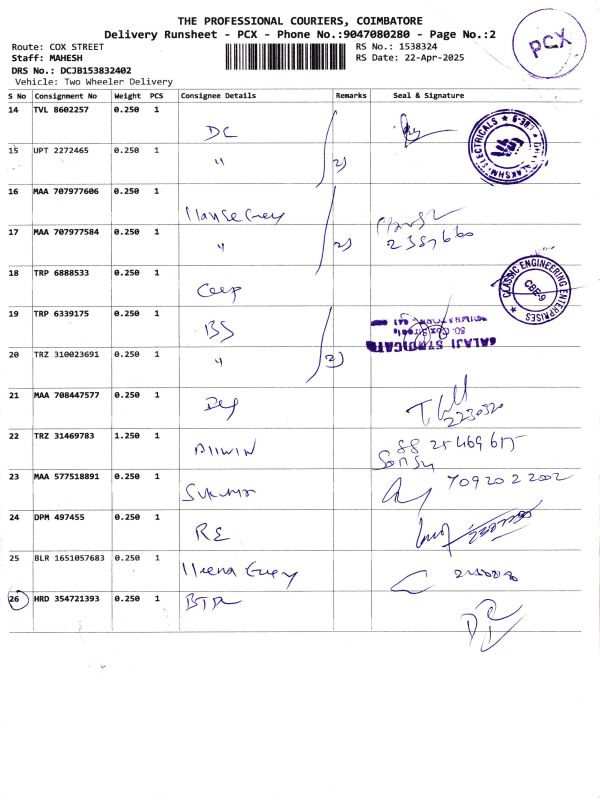 THE PROFESSIONAL COURIERS, COIMBATORE
Delivery Runsheet - PCX - Phone No.:9047080280 - Page No.:2
PCX
Route: COX STREET
RS No.: 1538324
Staff: MAHESH
RS Date: 22-Apr-2025
DRS No.: DCJB153832402
Vehicle: Two Wheeler Delivery
S No Consignment No Weight PCS Consignee Details Remarks Seal & Signature
14 TVL 8602257 0.250 1
DC
15 UPT 2272465 0.250 1
" 2)
ELECTRICALS
16 MAA 707977606 0.250 1
17 MAA 707977584 0.250 1
" 2)
18 TRP 6888533 0.250 1
CLASSIC ENGINEERING ENTERPRISES
CBE-9
19 TRP 6339175 0.250 1
BS
20 TRZ 310023691 0.250 1
" 2)
21 MAA 708447577 0.250 1
2230320
22 TRZ 31469783 1.250 1
AllWIN
23 MAA 577518891 0.250 1
Sukumar 7092022002
24 DPM 497455 0.250 1
RE
25 BLR 1651057683 0.250 1
26 HRD 354721393 0.250 1